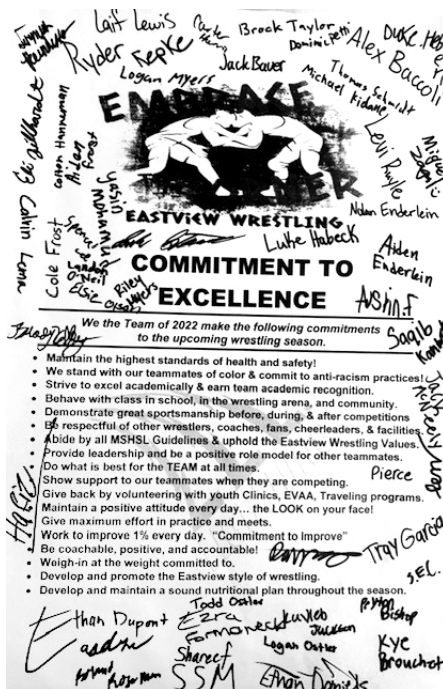 Lait Lewis
Carter
Brock Taylor
Dominic Petti
Duke
Alex Baccoli
Ryder Repke
Logan Myers
Jack Bauer
Thomas Schmidt
Michael Kidane
EMBRACE
EASTVIEW WRESTLING
Eli
Colton Hanneman
Aiden
Levi Ruyle
Nolan Enderlein
Calvin
Cole Frost
Yassin Mohamud
Luke Habeck
Aiden Enderlein
Landon O'Neil
Elsie Olson
Riley Myers
COMMITMENT TO
EXCELLENCE
Saqib
We the Team of 2022 make the following commitments
to the upcoming wrestling season.
• Maintain the highest standards of health and safety!
• We stand with our teammates of color & commit to anti-racism practices!
• Strive to excel academically & earn team academic recognition.
• Behave with class in school, in the wrestling arena, and community.
• Demonstrate great sportsmanship before, during, & after competitions
• Be respectful of other wrestlers, coaches, fans, cheerleaders, & facilities
• Abide by all MSHSL Guidelines & uphold the Eastview Wrestling Values.
• Provide leadership and be a positive role model for other teammates.
• Do what is best for the TEAM at all times.
Pierce
• Show support to our teammates when they are competing.
• Give back by volunteering with youth Clinics, EVAA, Traveling programs.
• Maintain a positive attitude every day... the LOOK on your face!
• Give maximum effort in practice and meets.
• Work to improve 1% every day. "Commitment to Improve"
• Be coachable, positive, and accountable!
Hafiz
Tray Garcia
• Weigh-in at the weight committed to.
• Develop and promote the Eastview style of wrestling.
• Develop and maintain a sound nutritional plan throughout the season.
S.E.C.
Ethan Dupont
Todd Ostler
Ezra
Shareef
Logan Ostler
Peyton Bishop
Kye
SSM
Ethan Daniels